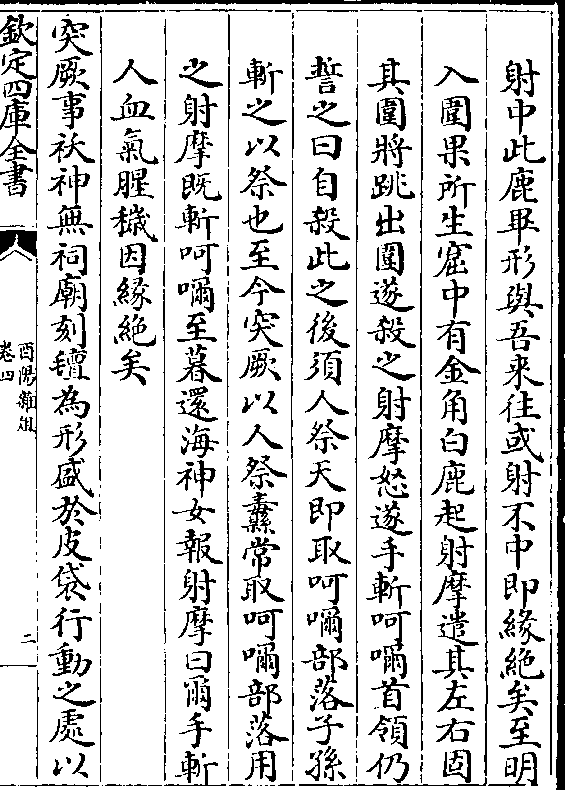 射中此鹿畢形與吾来往或射不中即緣絶矣至明
入圍果所生窟中有金角白鹿起射摩遣其左右固
其圍將跳出圍遂殺之射摩怒遂手斬呵㘈首領仍
誓之曰自殺此之後須人祭天即取呵㘈部落子孫
斬之以祭也至今突厥以人祭纛常取呵㘈部落用
之射摩既斬呵㘈至暮還海神女報射摩曰爾手斬
人血氣腥穢因緣絶矣
突厥事祅神無祠廟刻氊為形盛於皮袋行動之處以
欽定四庫全書
酉陽雜俎
卷四
二